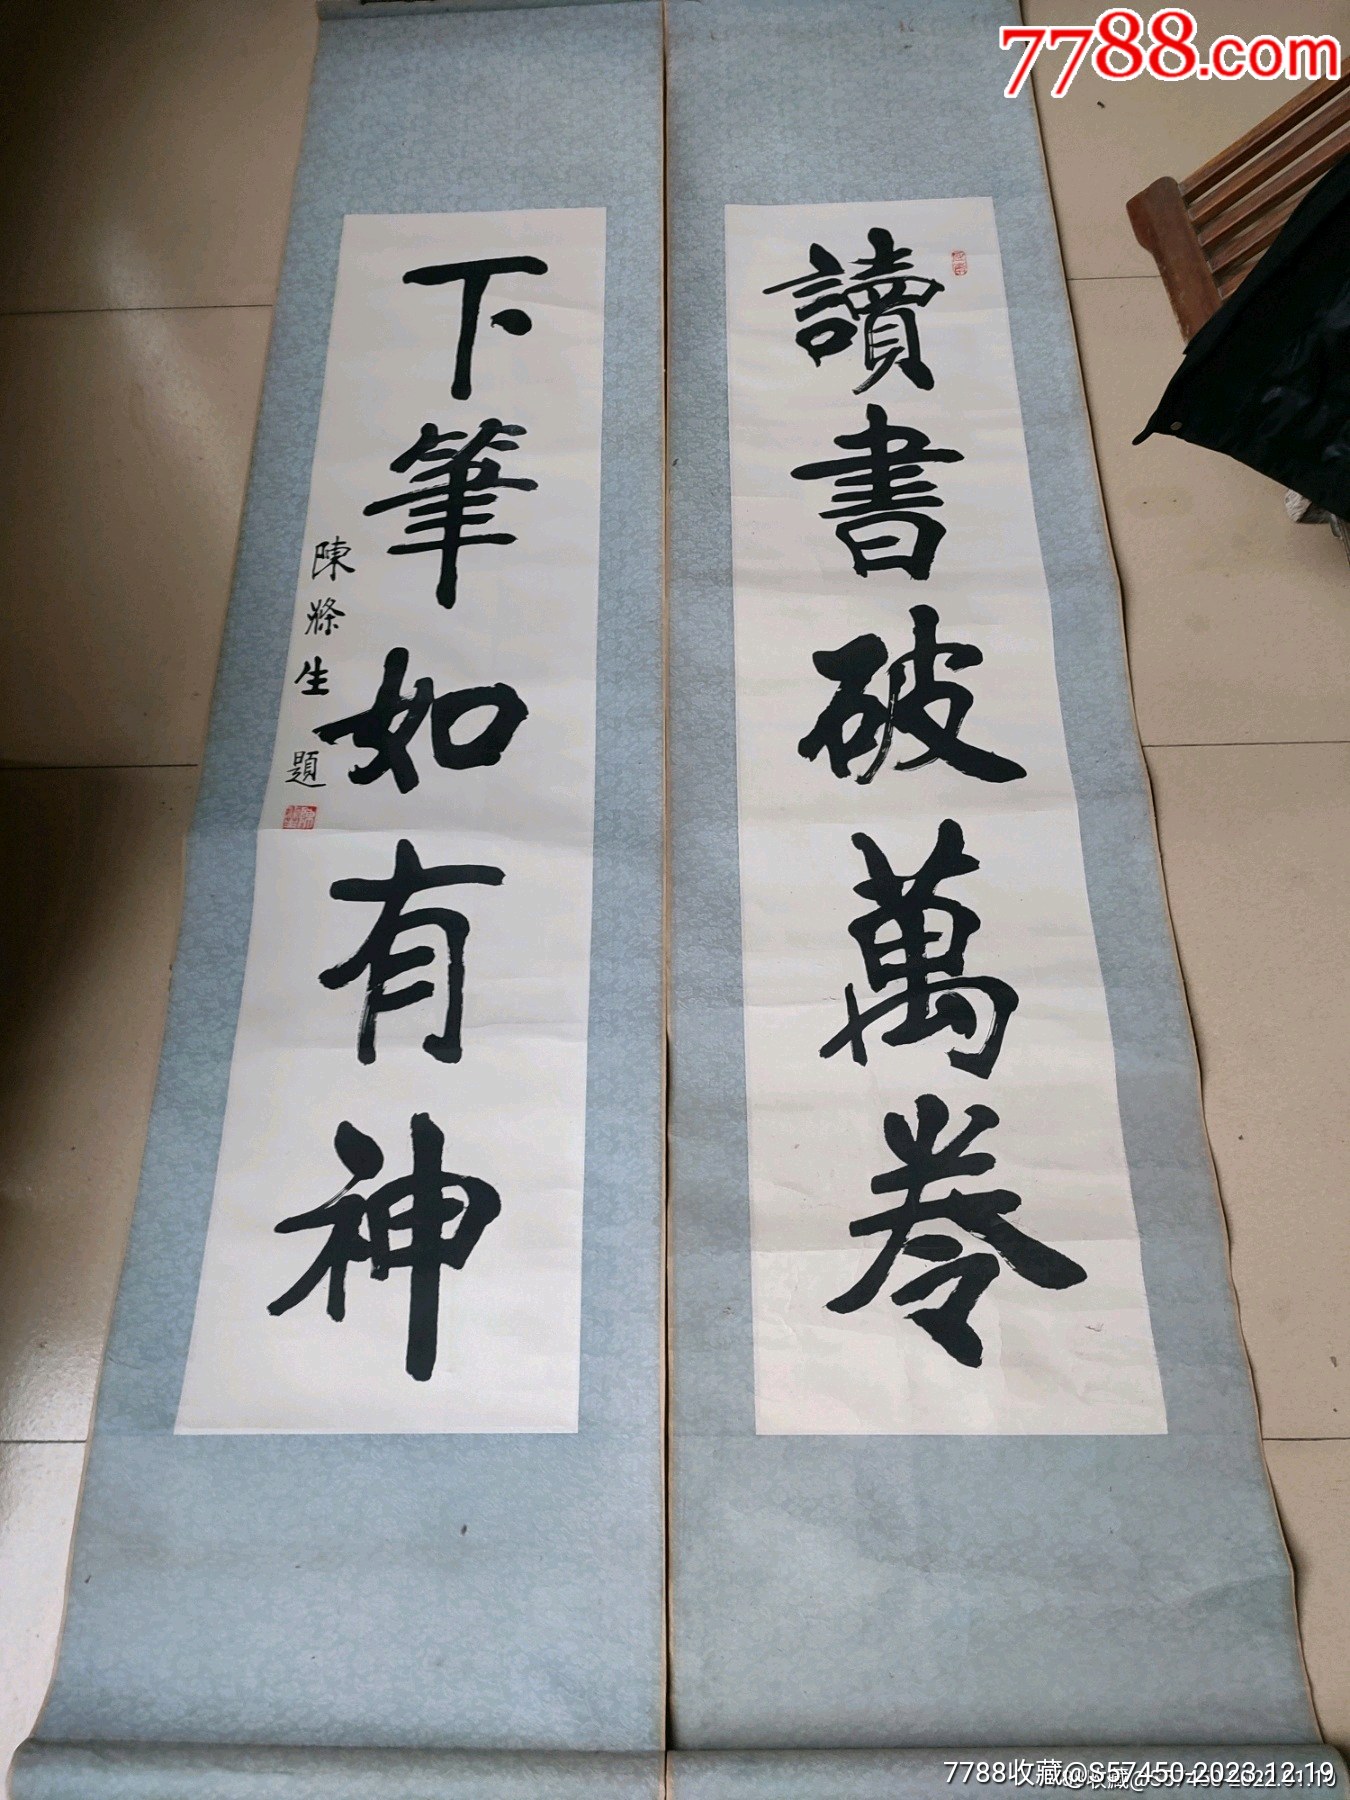 7788.com
讀書破萬卷
下筆如有神
陳滌生 題
7788收藏@S57450-2023.12.19